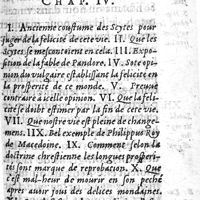 CHAP. IV.
I. Ancienne coustume des Scytes pour
juger de la felicité de cete vie. II. Que les
Scytes se mescontoient en cela. III. Expo-
sition de la fable de Pandore. IV. Sote opi-
nion du vulgaire establissant la felicité en
la prosperité de ce monde. V. Preuve
contraire a icelle opinion. VI. Que la feli-
cité se doit estimer par la fin de cete vie.
VII. Que nostre vie est pleine de change-
mens. IIX. Bel exemple de Philippus Roy
de Macedoine. IX. Comment selon la
doctrine chrestienne les longues prosperi-
tés sont marque de reprobation. X. Que
c'est mal-heur de mourir en son peché
aprés avoir joui des delices mondaines.